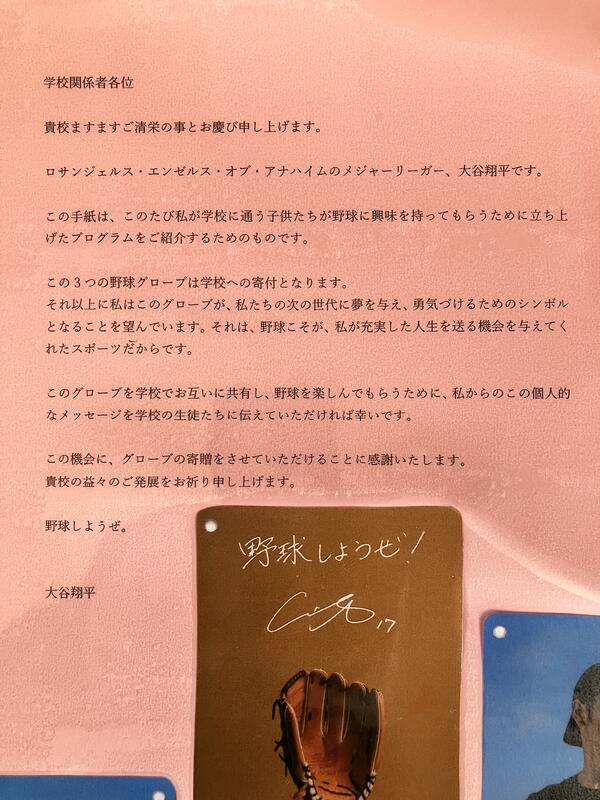 学校関係者各位
貴校ますますご清栄の事とお慶び申し上げます。
ロサンジェルス・エンゼルス・オブ・アナハイムのメジャーリーガー、大谷翔平です。
この手紙は、このたび私が学校に通う子供たちが野球に興味を持ってもらうために立ち上
げたプログラムをご紹介するためのものです。
この３つの野球グローブは学校への寄付となります。
それ以上に私はこのグローブが、私たちの次の世代に夢を与え、勇気づけるためのシンボル
となることを望んでいます。それは、野球こそが、私が充実した人生を送る機会を与えてく
れたスポーツだからです。
このグローブを学校でお互いに共有し、野球を楽しんでもらうために、私からのこの個人的
なメッセージを学校の生徒たちに伝えていただければ幸いです。
この機会に、グローブの寄贈をさせていただけることに感謝いたします。
貴校の益々のご発展をお祈り申し上げます。
野球しようぜ。
大谷翔平
野球しようぜ！
17